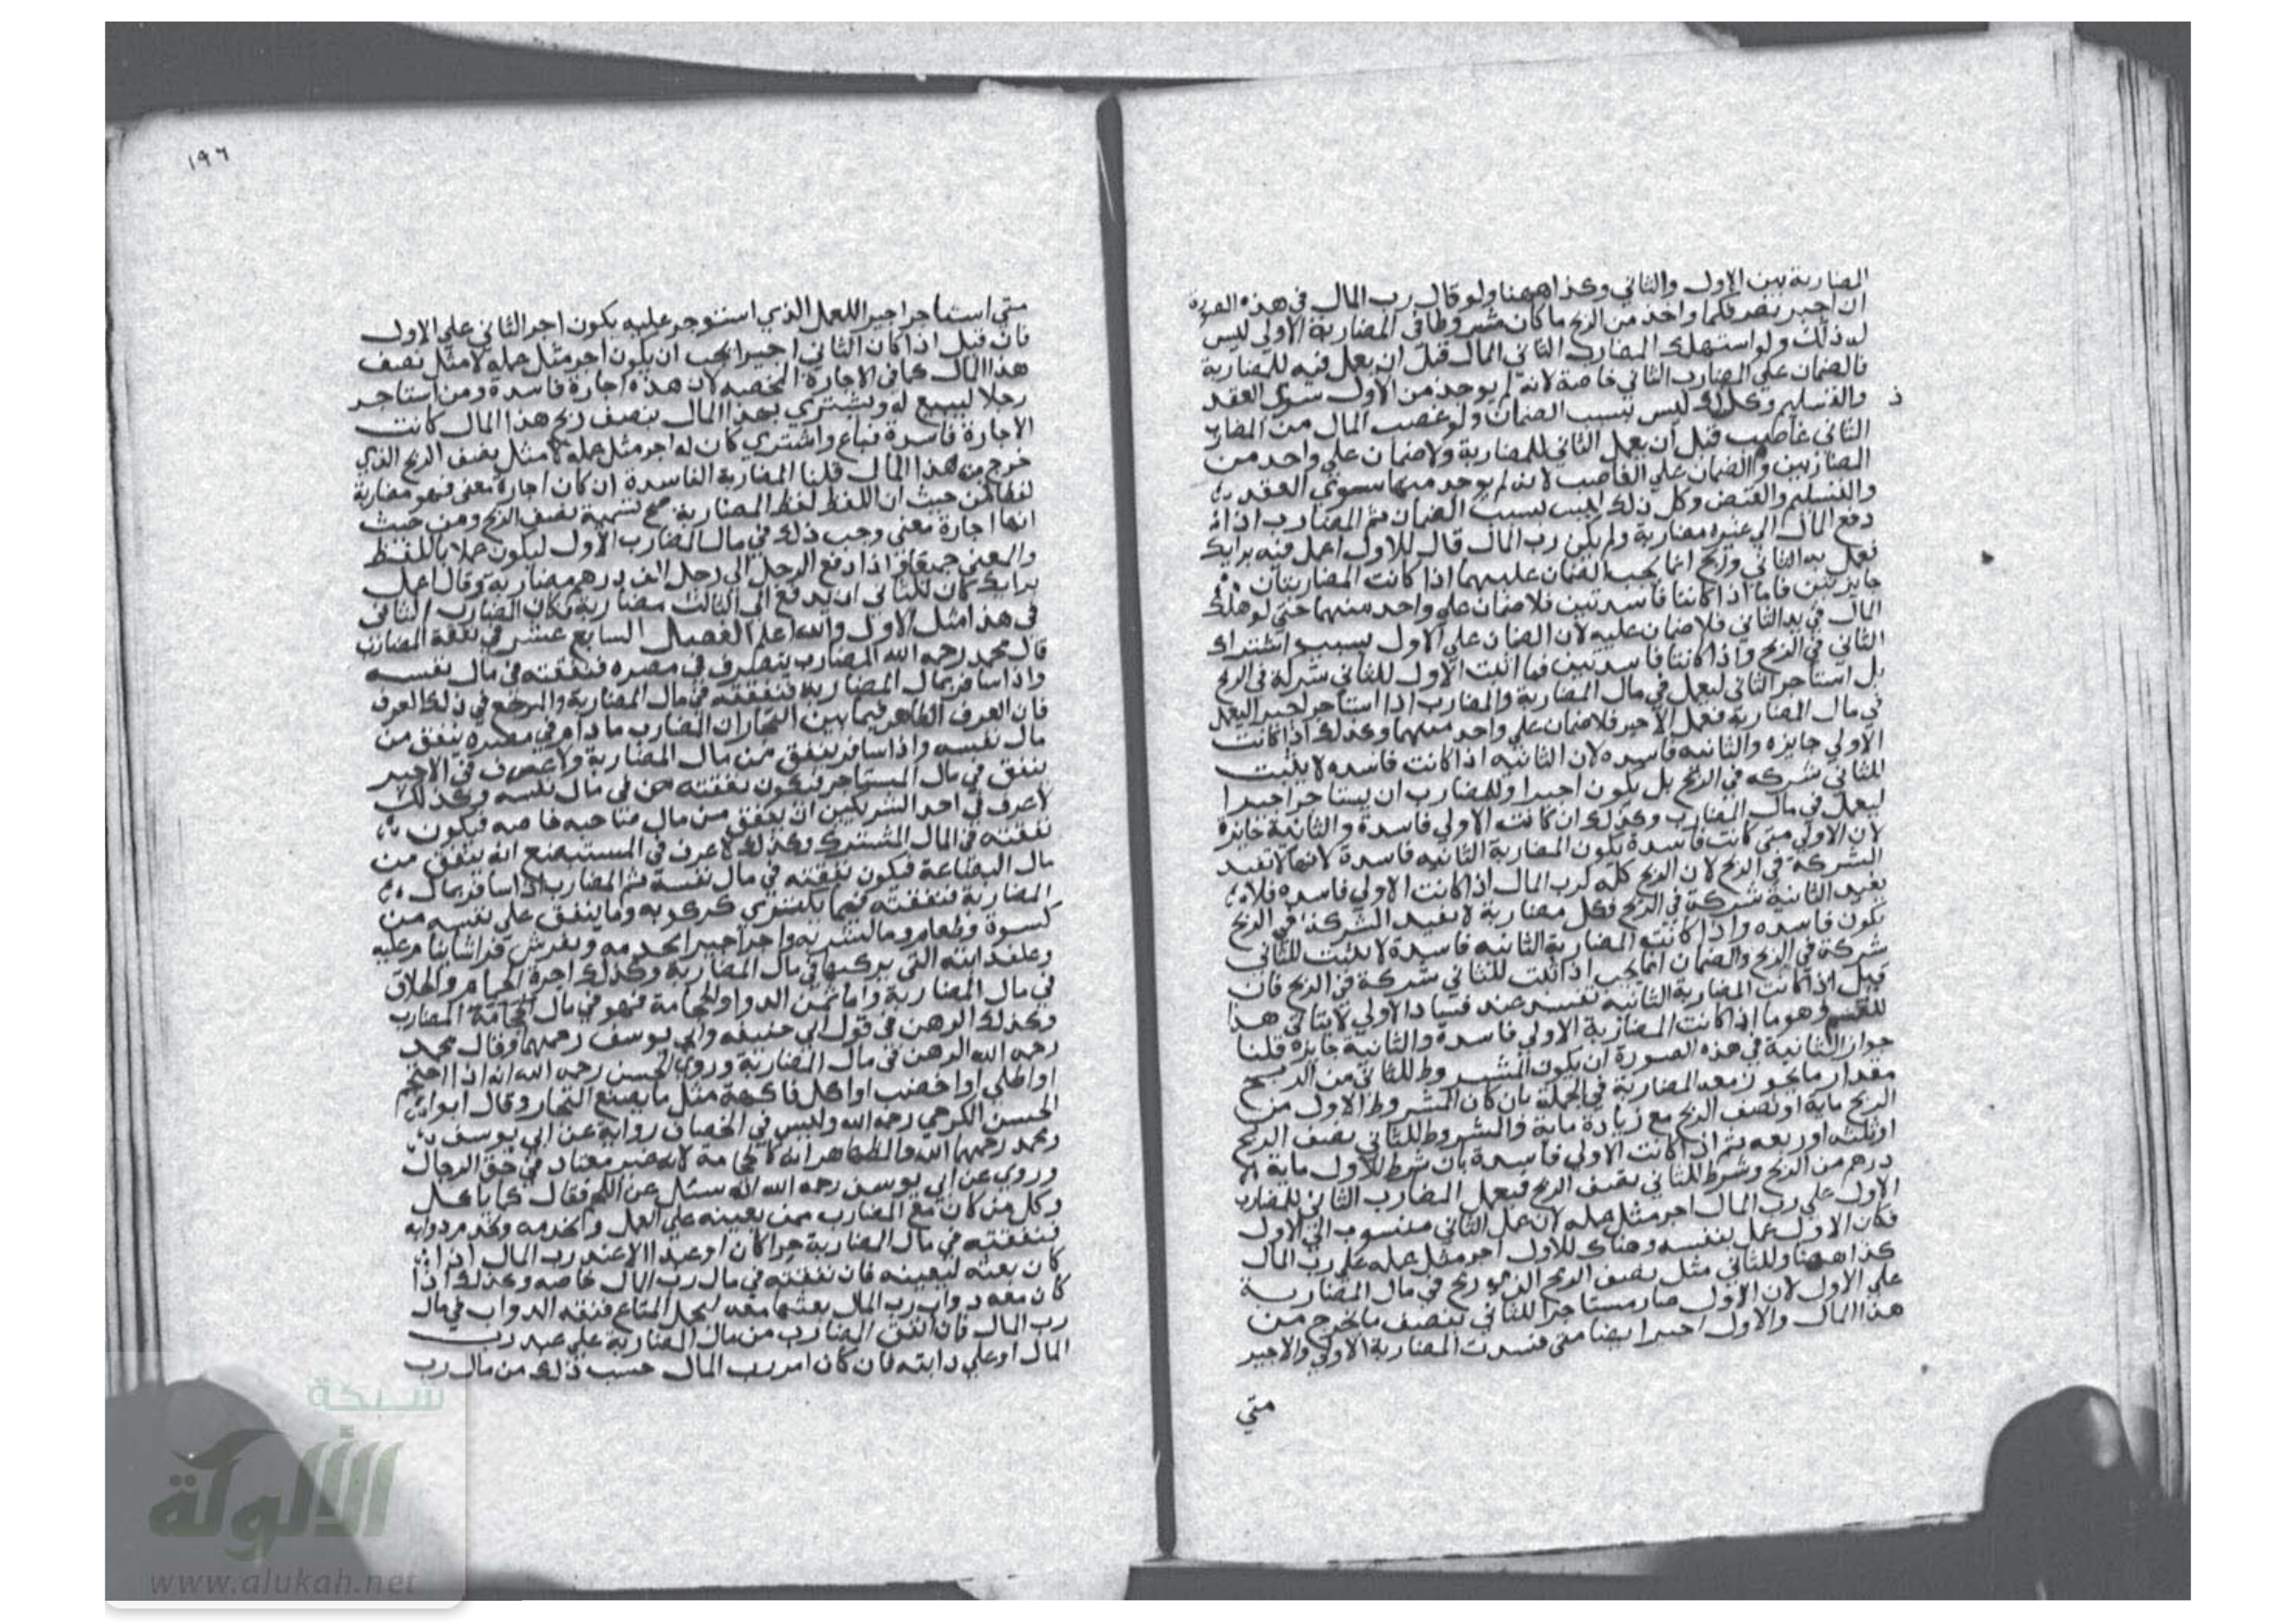 المضاربة بين الاول والثاني وكذا ههنا ولو قال رب المال في هذه الصورة
ان اجيز تصرفكما واخذ من الربح ما كان مشروطا في المضاربة الاولي ليس
له ذلك ولو استهلك المضارب الثاني المال قبل ان يعمل فيه للمضاربة
فالضمان علي المضارب الثاني خاصة لانه لم يوجد من الاول سوي العقد
ذ
والتسليم وكل ذلك ليس بسبب الضمان ولو غصب المال من المضارب
الثاني غاصب قبل ان يعمل الثاني للمضاربة ولا ضمان علي واحد من
المضاربين والضمان علي الغاصب لانه لم يوجد منهما سوي العقد
والتسليم والقبض وكل ذلك ليس بسبب الضمان ثم المضارب اذا
دفع المال الي غيره مضاربة ولم يكن رب المال قال للاول اعمل فيه برايك
فعمل به الثاني وربح انما يجب الضمان عليهما اذا كانت المضاربتان
جايزتين فاما اذا كانتا فاسدتين فلا ضمان علي واحد منهما حتي لو هلك
المال في يد الثاني فلا ضمان عليه لان الضمان علي الاول بسبب اشتراك
الثاني في الربح واذا كانتا فاسدتين فما اثبت الاول للثاني شركة في الربح
بل استاجر الثاني ليعمل في مال المضاربة والمضارب اذا استاجر اجيرا ليعمل
في مال المضاربة فعمل الاجير فلا ضمان علي واحد منهما وكذلك اذا كانت
الاولي جايزه والثانيه فاسده لان الثانيه اذا كانت فاسده لا يثبت
للثاني شركه في الربح بل يكون اجيرا وللمضارب ان يستاجر اجيرا
ليعمل في مال المضارب وكذلك ان كانت الاولي فاسدة والثانية جايزة
لان الاولي متي كانت فاسدة يكون المضاربة الثانيه فاسدة لانها لا تفيد
الشركة في الربح لان الربح كله لرب المال اذا كانت الاولي فاسده فلا
يفيد الثانية شركة في الربح وكل مضاربة لا يفيد الشركة في الربح
يكون فاسده واذا كانت المضاربة الثانيه فاسدة لا يثبت للثاني
شركة في الربح والضمان انما يجب اذا اثبت للثاني شركة في الربح فان
قيل اذا كانت المضاربة الثانيه تفسد عند فساد الاولي لا يتاتي هذا
وهو ما اذا كانت المضاربة الاولي فاسدة والثانية جايزة قلنا
جواز الثانية في هذه الصورة ان يكون المشروط للثاني من الربح
مقدار ما يجوز معه المضاربة في الجملة بان كان المشروط للاول من
الربح ماية او نصف الربح مع زيادة ماية والمشروط للثاني نصف الربح
او ثلثه او ربعه ثم اذا كانت الاولي فاسدة بان شرط للاول ماية
درهم من الربح وشرط للثاني نصف الربح فيعمل المضارب الثاني للمضارب
الاول علي رب المال اجر مثل عمله لان عمل الثاني منسوب الي الاول
فكان الاول عمل بنفسه وهناك للاول اجر مثل عمله علي رب المال
كذا ههنا وللثاني مثل نصف الربح الذي ربح في مال المضاربة
علي الاول لان الاول صار مستاجرا للثاني بنصف ما يخرج من
هذا المال والاول اجير ايضا متي فسدت المضاربة الاولي والاجير
متي
١٩٦
متي استاجر اجيرا للعمل الذي استوجر عليه يكون اجر الثاني علي الاول
فان قيل اذا كان الثاني اجيرا يجب ان يكون اجر مثل عمله لا مثل نصف
هذا المال كما في الاجارة المحضه لان هذه اجارة فاسدة ومن استاجر
رجلا ليبيع له ويشتري بهذا المال بنصف ربح هذا المال كانت
الاجارة فاسدة فباع واشتري كان له اجر مثل عمله لا مثل نصف الربح الذي
خرج من هذا المال قلنا المضاربة الفاسدة ان كان اجارة معني فهو مضاربة
لفظا فمن حيث ان اللفظ لفظ المضاربة صح تسمية نصف الربح ومن حيث
انها اجارة معني وجب ذلك في مال المضارب الاول ليكون عملا باللفظ
والمعني جميعا واذا دفع الرجل الي رجل الف درهم مضاربة وقال اعمل
برايك كان للثاني ان يدفع الي الثالث مضاربة وكان المضارب الثاني
في هذا مثل الاول والله اعلم الفصل السابع عشر في نفقة المضارب
قال محمد رحمه الله المضارب يتصرف في مصره فنفقته في مال نفسه
واذا سافر بمال المضاربة فنفقته في مال المضاربة والمرجع في ذلك العرف
فان العرف الظاهر فيما بين التجار ان المضارب ما دام في مصره ينفق من
مال نفسه واذا سافر ينفق من مال المضاربة ولا عرف في الاجير
ينفق في مال المستاجر فيكون نفقته في مال نفسه وكذلك
لا عرف في احد الشريكين ان ينفق من مال صاحبه خاصه فيكون
نفقته في المال المشترك وكذلك لا عرف في المستبضع انه ينفق من
مال البضاعة فيكون نفقته في مال نفسه ثم المضارب اذا سافر بمال
المضاربة فنفقته فيما يكتري كركوبه وما ينفق علي نفسه من
كسوة وطعام وما يشربه واجر اجير يخدمه ويفرش فراشا ينام عليه
وعلف دابته التي يركبها في مال المضاربة وكذلك اجرة الحمام والحلاق
في مال المضاربة واما ثمن الدوا والحجامة فهو في مال المضارب
وكذلك الدهن في قول ابي حنيفه وابي يوسف رحمهما وقال محمد
رحمه الله الدهن في مال المضاربة وروي الحسن رحمه الله انه اذا احتجم
او اطلي او اخضب او اكل فاكهة مثل ما يصنع التجار وقال ابو
الحسن الكرخي رحمه الله وليس في الخضاب رواية عن ابي يوسف
ومحمد رحمهما الله والظاهر انه كالحجامة لانه غير معتاد في حق الرجال
وروي عن ابي يوسف رحمه الله انه سئل عن اللحم فقال كما ياكل
وكل من كان مع المضارب ممن يعينه علي العمل او يخدمه ويخدم دوابه
فنفقته في مال المضاربة حرا كان او عبدا الا عند رب المال اذا
كان بعثه ليعينه فان نفقته في مال رب المال خاصه وكذلك اذا
كان معه دواب رب المال بعثها معه ليحمل المتاع فنفقه الدواب في مال
رب المال فان انفق المضارب من مال المضاربة علي عبد رب
المال او علي دابته فان كان امر رب المال حسب ذلك من مال رب
شبكة
الألوكة
www.alukah.net